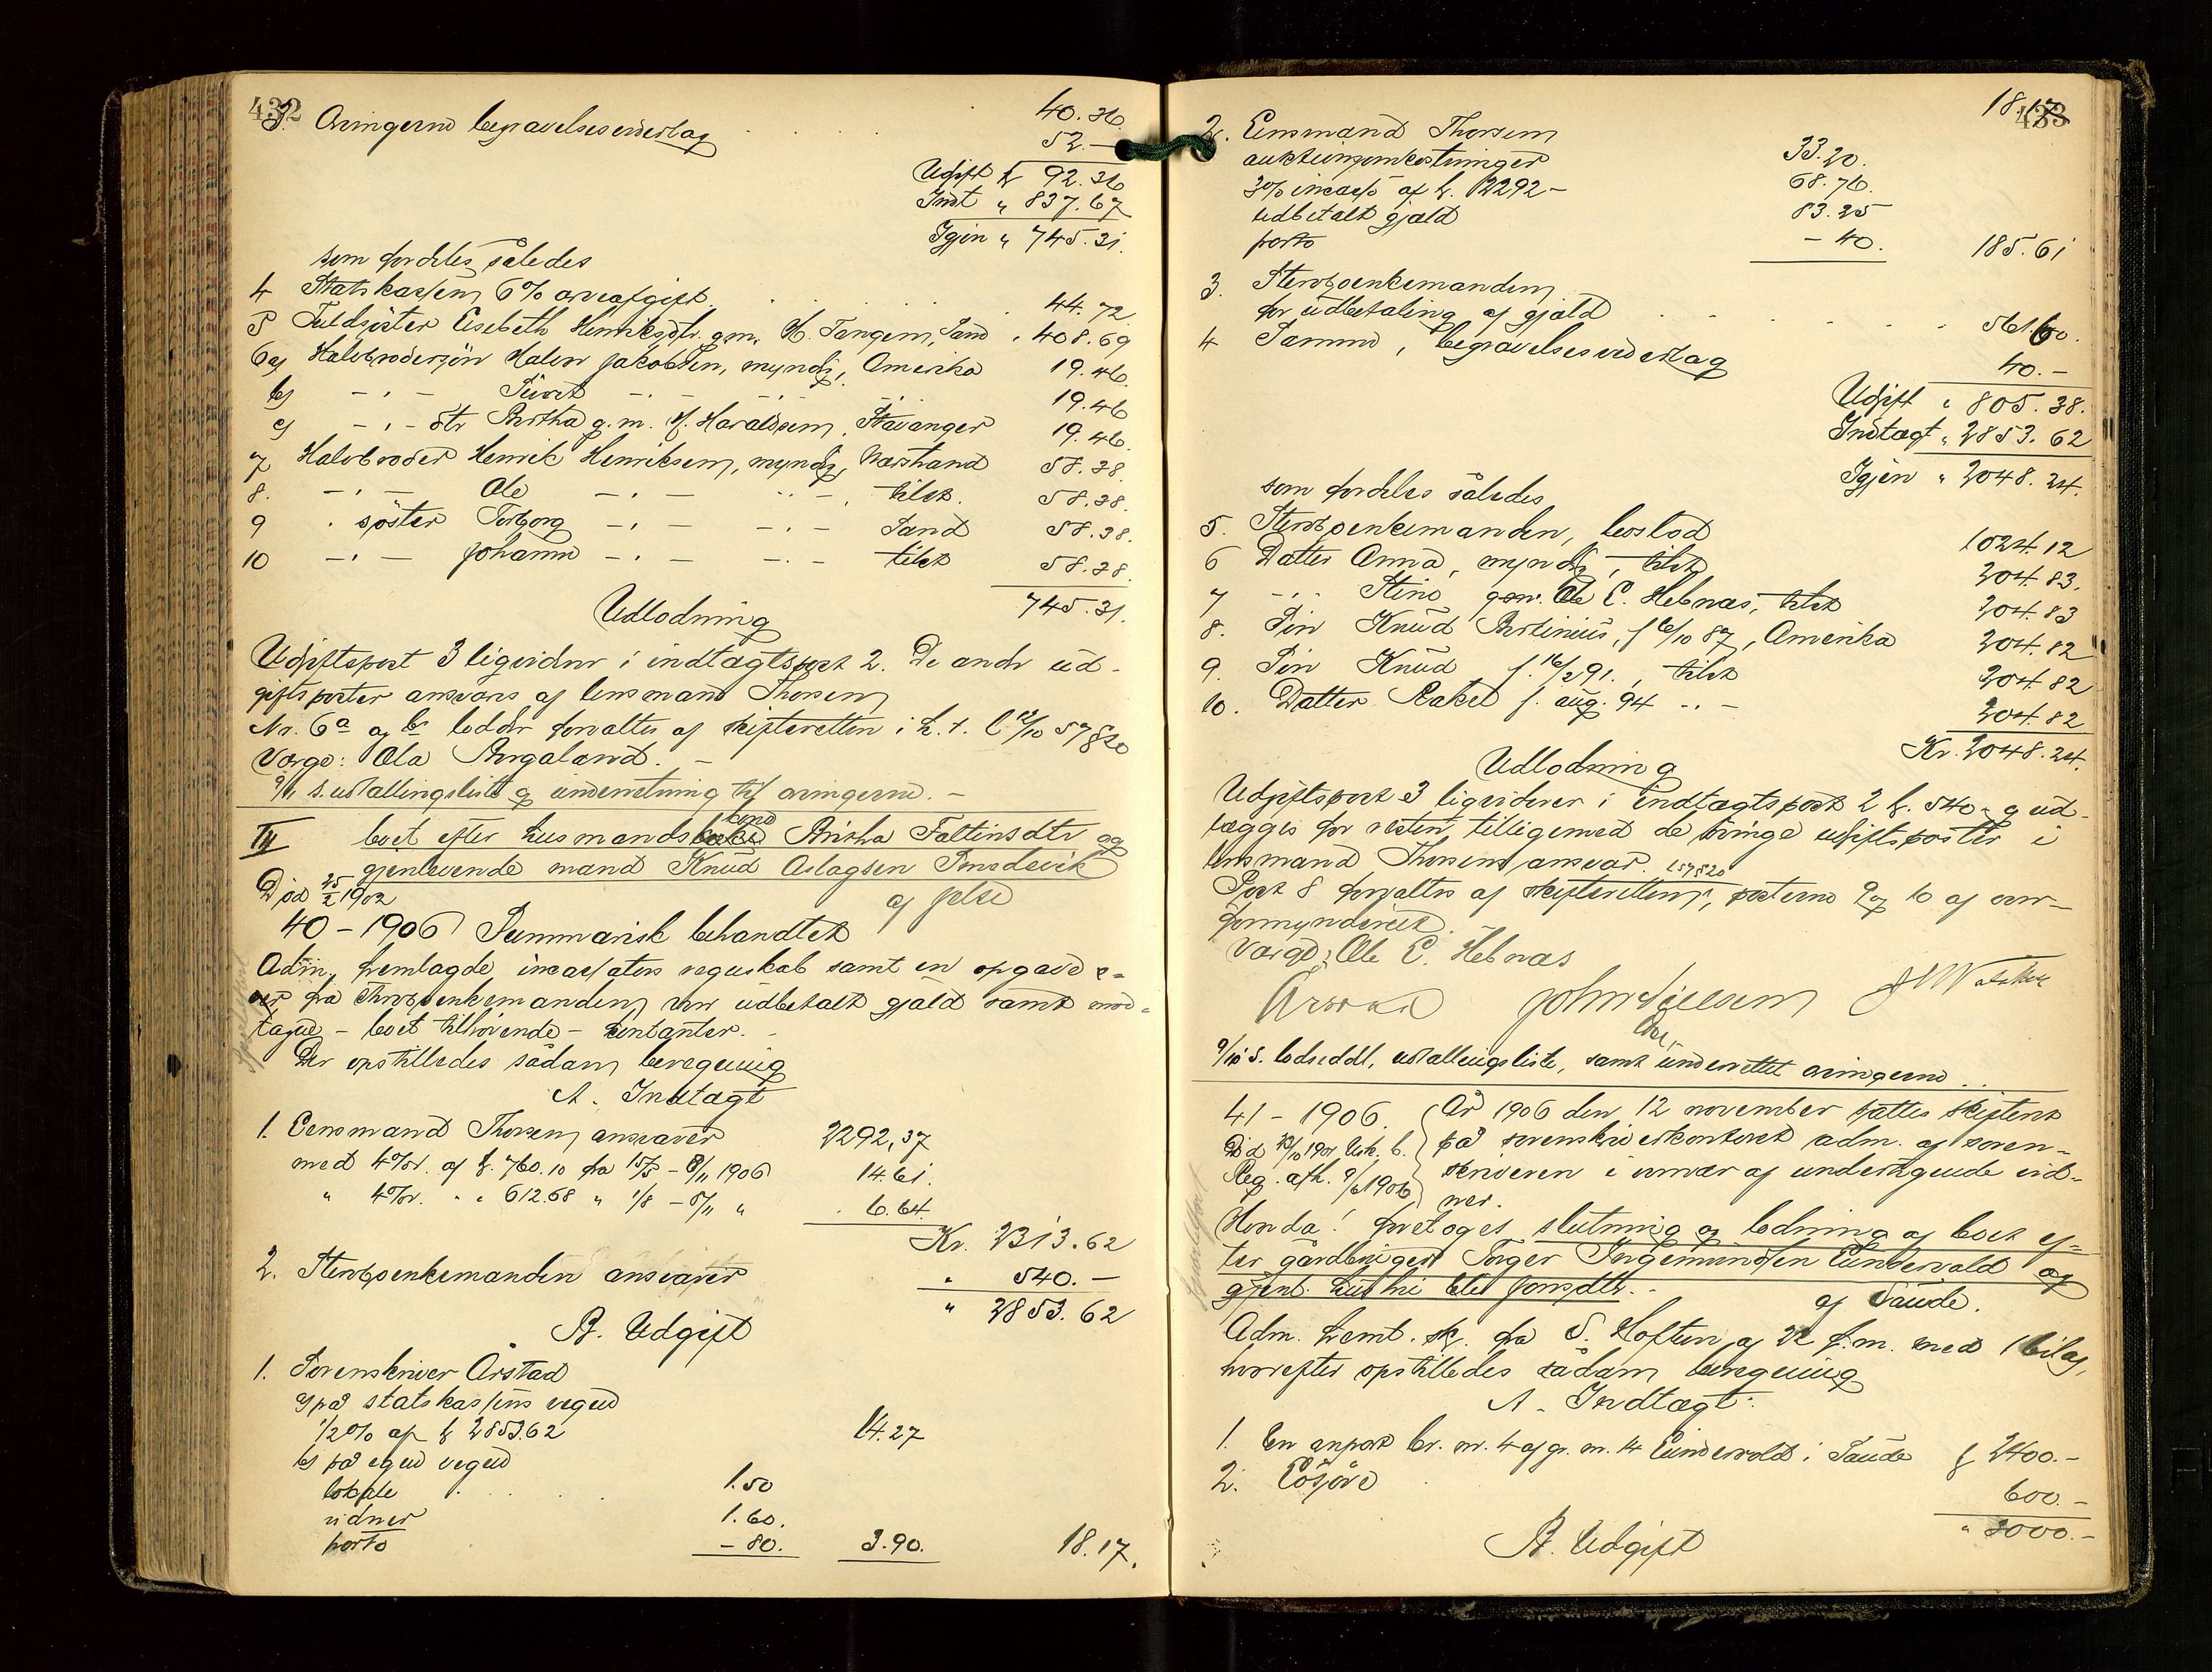 432
40.36
3. Arvingerne begravelsesvederlag 52.—
Udgift k 92.36
Indt " 837.67
Igjen " 745.31.
som fordeles således
4 Statskassen 6% arveafgift 44.72
5 Fuldsøster Lisebeth Henriksdtr. g.m. H. Tangen, Sand 408.69
6 a) Halvbrodersøn Halvor Jakobsen, myndig, Amerika 19.46
b) — " — Sivert — " — 19.46
c) — " — dtr Bertha g.m. Haraldsen, Stavanger 19.46
7 Halvbroder Henrik Henriksen, myndig, Narstrand 58.38
8. — " — Ole — " — " — tilst. 58.38.
9 " søster Torborg — " — — " — Sand 58.38.
10 — " — Johanne — " — — " — tilst 58.38.
745.31.
Udlodning
Udgiftspost 3 ligviderer i indtægtspost 2. De andre ud-
giftsposter ansvares af lensmand Thorsen
Nr. 6a og b lodder forvaltes af skifteretten i h. t. l 12/10 57 § 20
Værge: Ola Bergaland. —
9/11 s. udtællingsliste og underretning til arvingerne. —
III boet efter husmandskone Britha Faltinsdtr og
gjenlevende mand Knud Aslagsen
Død 25/2 1902 af Jelse
40 – 1906 Summarisk behandlet
Adm. fremlagde incassators regnskab samt en opgave o-
ver fra Stervboenkemanden over udbetalt gjæld samt mod-
tagne – boet tilhørende – kontanter.
Der opstilledes sådan beregning
A. Indtægt
1. Lensmand Thorsen ansvarer 2292,37
med 4% r. af k. 760.10 fra 15/5 – 8/11 1906 14.61.
" 4% r. " " 612.68 " 1/8 – 8/11 " 6.64.
Kr. 2313.62
2. Stervboenkemanden ansvarer " 540.—
" 2853.62
B. Udgift
1. Sorenskriver Årstad
a) på statskassens vegne
1/2% af k 2853.62 14.27
b) på egne vegne
lokale 1.50
vidner 1.60.
porto – 80. 3.90. 18.17.
433
18.17
2. Lensmand Thorsen
auktionsomkostninger 33.20.
3% incasso af k. 2292– 68.76.
udbetalt gjæld 83.25
porto – 40. 185.61
3. Stervboenkemanden
for udbetaling af gjæld 561.60.
4 Samme, begravelsesvederlag 40.—
Udgift " 805.38.
Indtægt " 2853.62
Igjen " 2048.24.
som fordeles således
5. Stervboenkemanden, boslod 1024.12
6 Datter Anna, myndig, tilst. 204.83.
7 — " — Stine g.m. Ole E. Hebnæs, tilst 204.83
8. Søn Knud Bertinius, f 6/10 87, Amerika 204.82
9. Søn Knud f. 16/2 91., tilst 204.82
10. Datter Rakel f. aug. 94 — " — 204.82
Kr. 2048.24.
Udlodning
Udgiftspost 3 ligviderer i indtægtspost 2 k. 540 – og ud-
lægges for resten tilligemed de øvrige udgiftsposter i
lensmand Thorsens ansvar. l 57 § 20
Post 8 forvaltes af skifteretten, posterne 9 og 10 af over-
formynderiet.
Værge, Ole E. Hebnæs
Årstad John Nielsen
9/11 s. lodseddl, udtællingsliste, samt underrettet arvingerne..
41 – 1906. År 1906 den 12 november sattes skifteret
på sorenskriverkontoret adm. af soren-
skriveren i nærvær af undertegnede vid-
ner.
Reg. afh. 9/6 1906
Honda! foretoges slutning og lodning af boet ef-
ter gårdbruger Torger Ingemundsen Lundevold og
gjenl. hustru Jonsdtr. — af Saude.
Adm. freml. sk. fra S. Hoftun af 22 f.m. med 1 bilag,
hvorefter opstilledes sådan beregning
A. Indtægt.
1. En anpart br. nr. 4 af gr. nr. 14 Lundevold i Saude k 2400.—
2. Løsøre 600.—
" 3000.—
B. Udgift